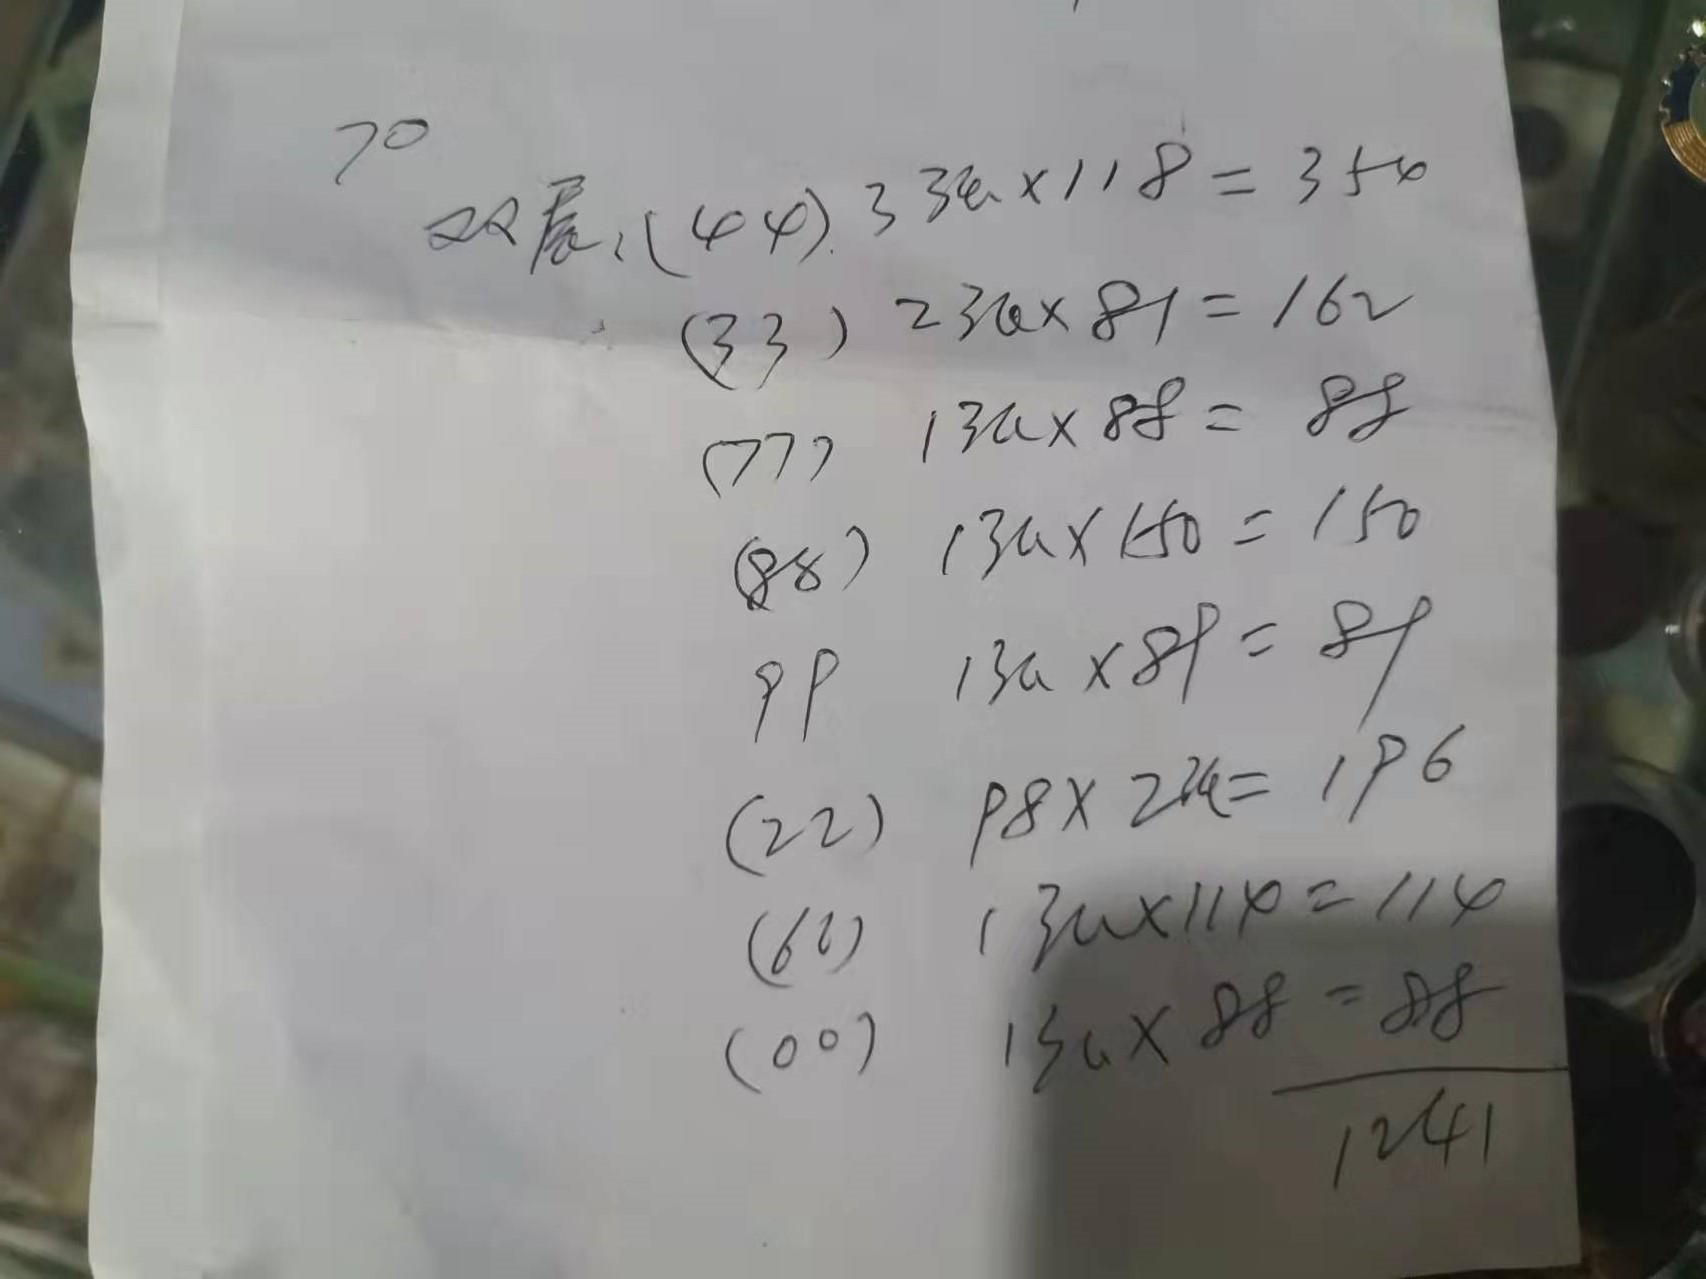 70
双辰:(44). 3张×118=354
(33) 2张×81=162
(77) 1张×88=88
(88) 1张×150=150
99 1张×89=89
(22) 98×2张=196
(66) 1张×114=114
(00) 1张×88=88
1241